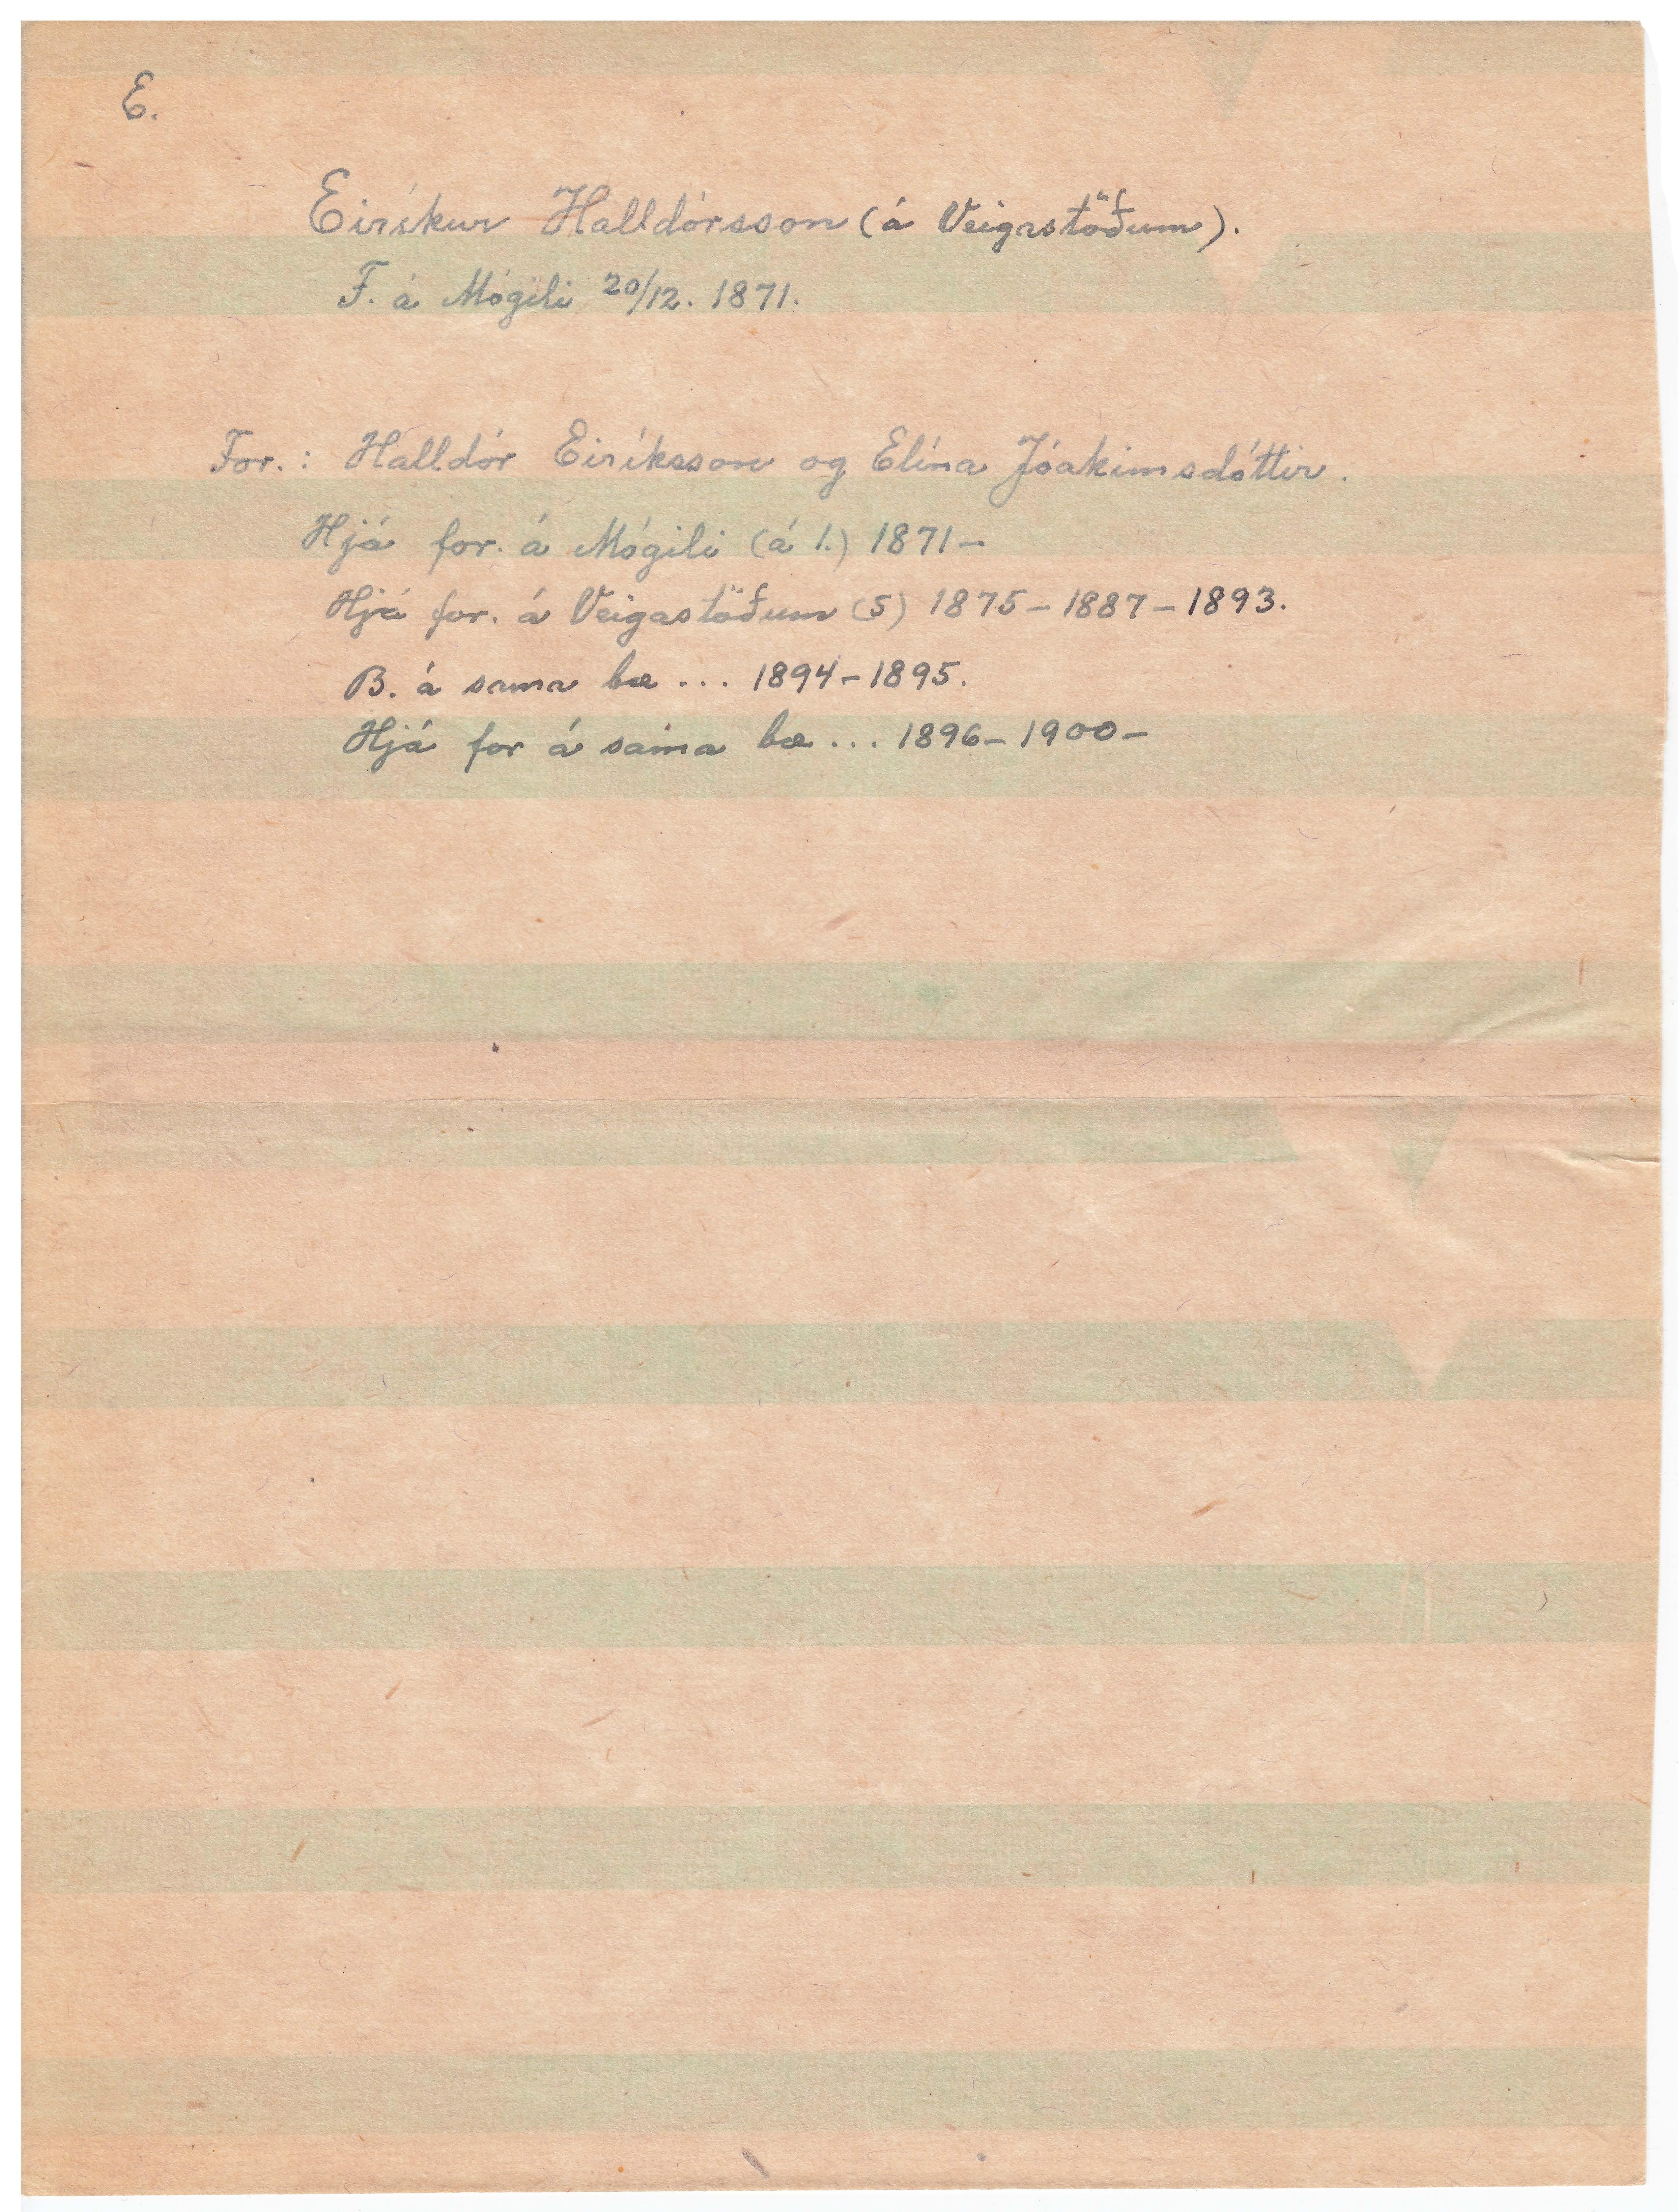 E.
Eiríkur Halldórsson (á Veigastöðum).
F. á Mógili 20/12. 1871.
For.: Halldór Eiríksson og Elína Jóakimsdóttir.
Hjá for. á Mógili (á 1.) 1871-
Hjá for. á Veigastöðum (5) 1875-1887-1893.
B. á sama bæ ... 1894-1895.
Hjá for á sama bæ ... 1896-1900-